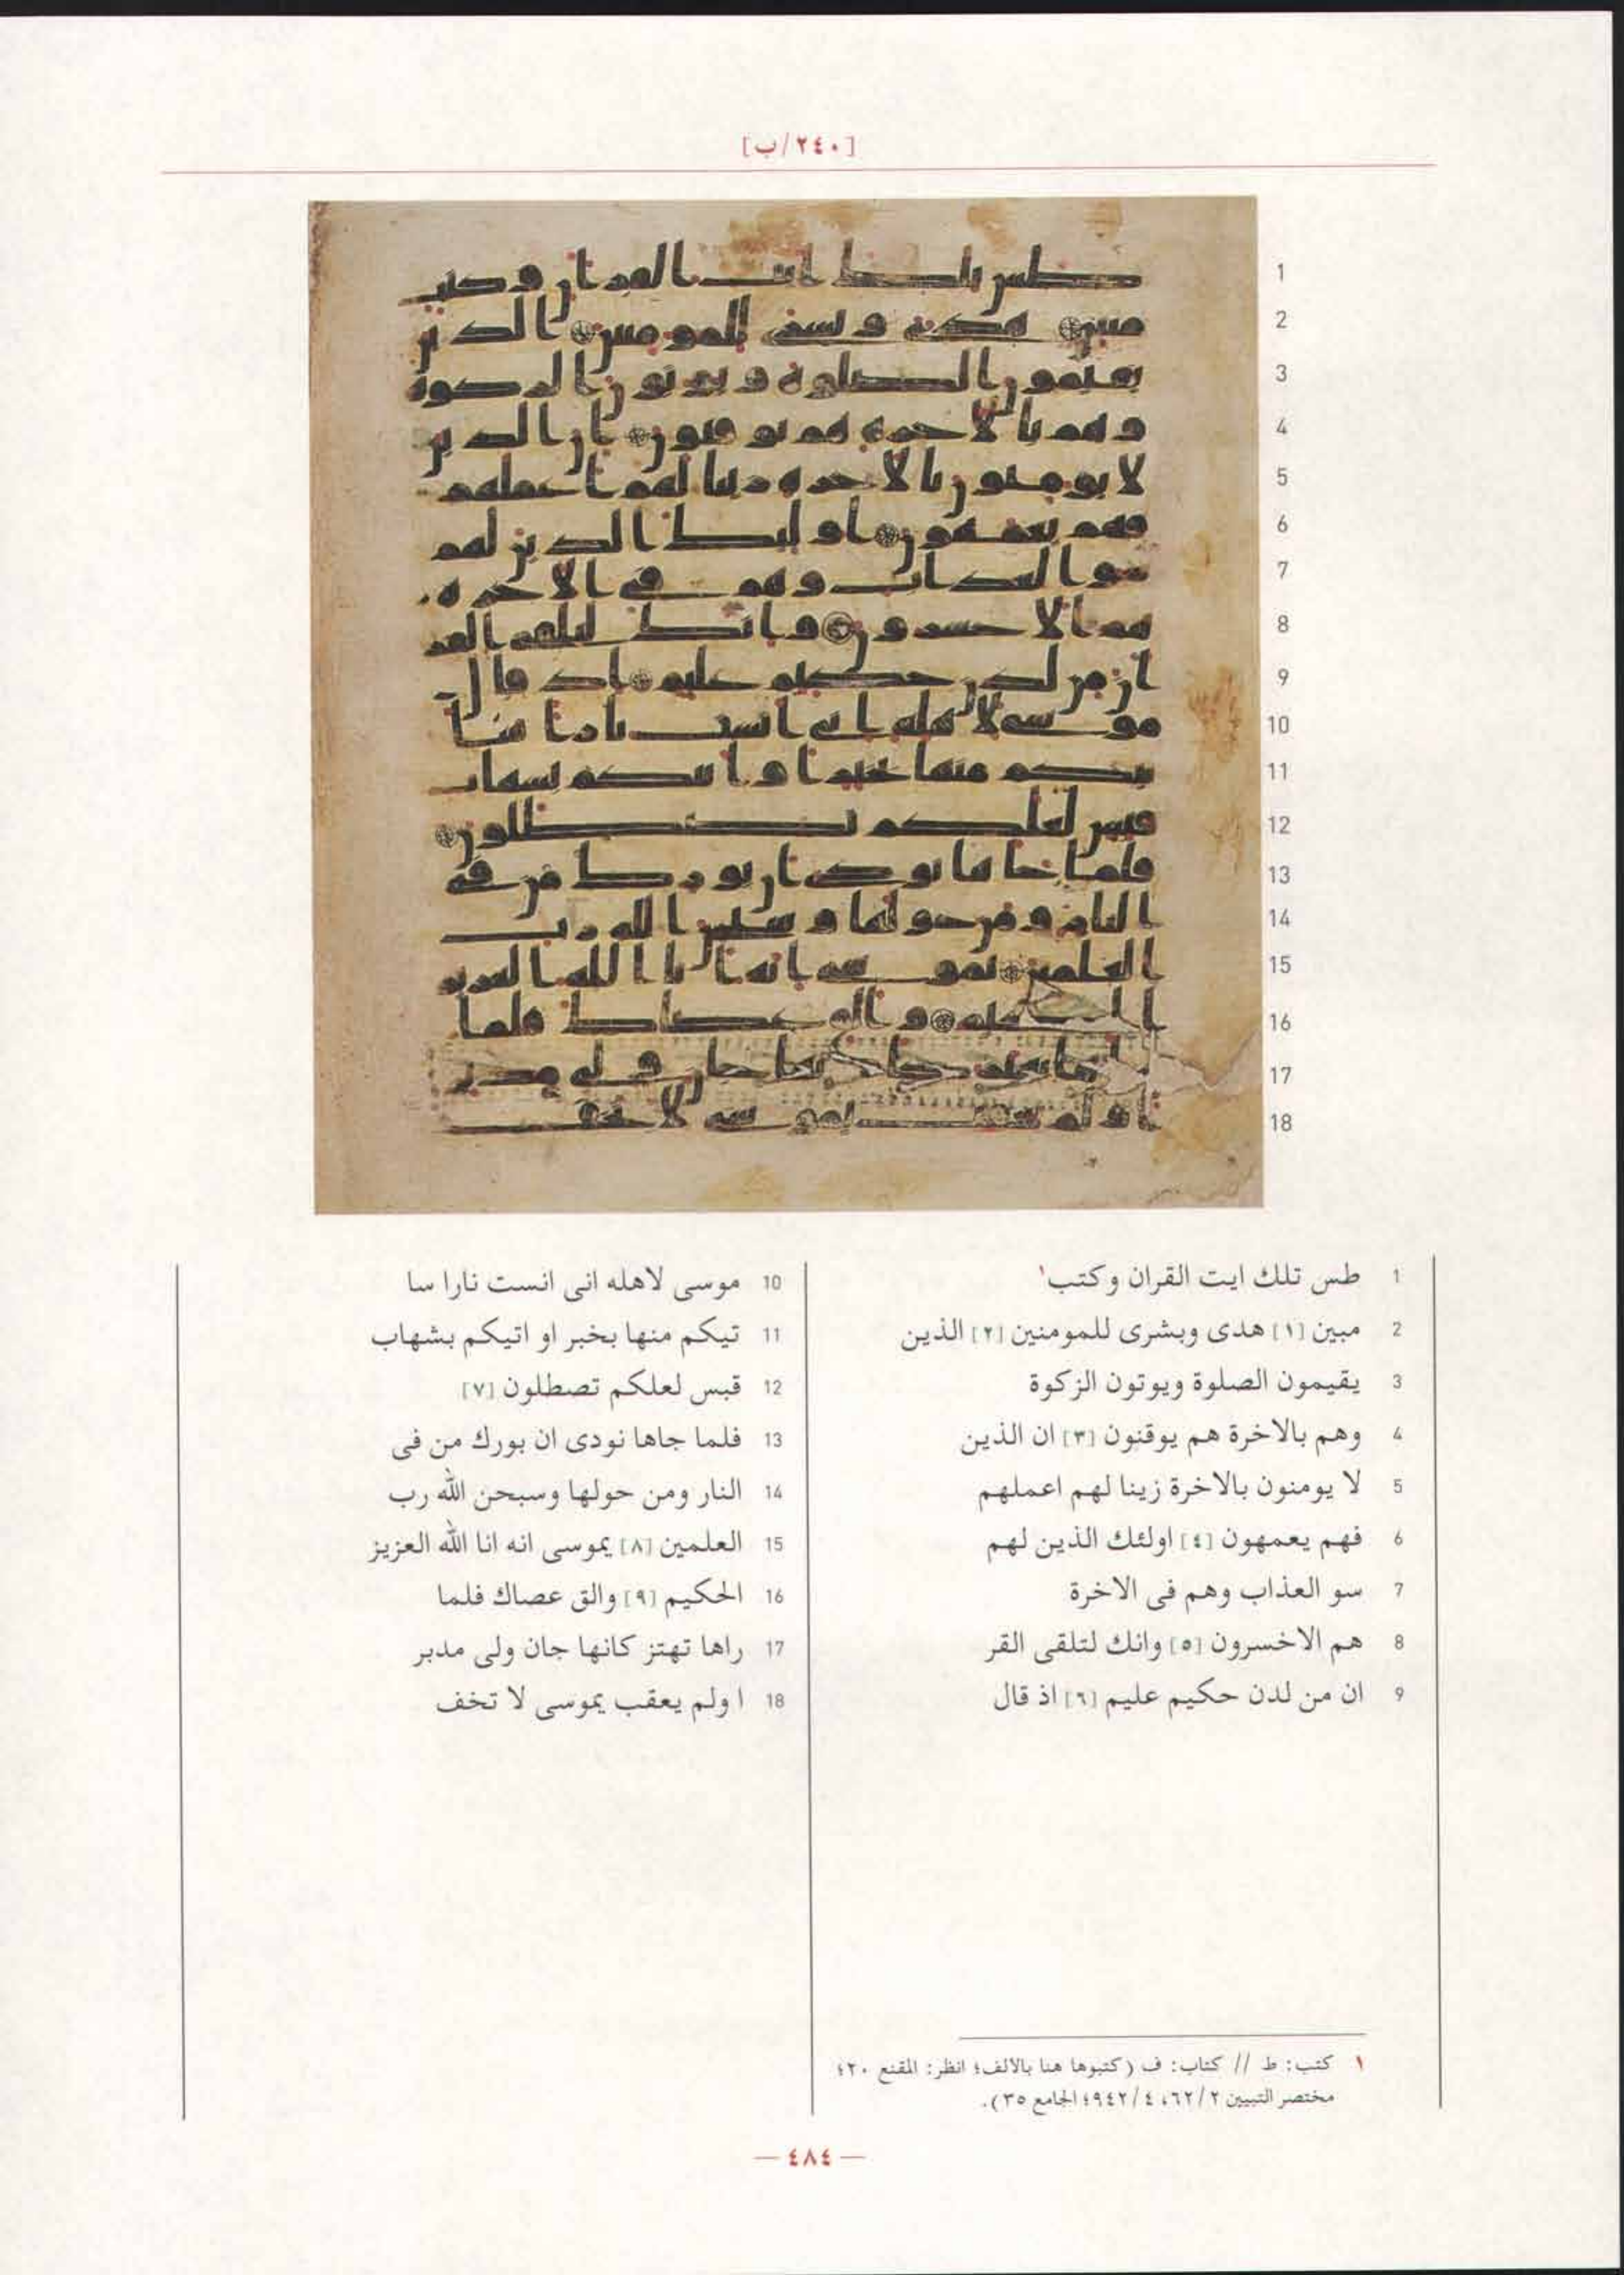 [٢٤٠/ب]
1 طس تلك ايت القران وكتب١
2 مبين [١] هدى وبشرى للمومنين [٢] الذين
3 يقيمون الصلوة ويوتون الزكوة
4 وهم بالاخرة هم يوقنون [٣] ان الذين
5 لا يومنون بالاخرة زينا لهم اعملهم
6 فهم يعمهون [٤] اولئك الذين لهم
7 سو العذاب وهم فى الاخرة
8 هم الاخسرون [٥] وانك لتلقى القر
9 ان من لدن حكيم عليم [٦] اذ قال
10 موسى لاهله انى انست نارا سا
11 تيكم منها بخبر او اتيكم بشهاب
12 قبس لعلكم تصطلون [٧]
13 فلما جاها نودى ان بورك من فى
14 النار ومن حولها وسبحن الله رب
15 العلمين [٨] يموسى انه انا الله العزيز
16 الحكيم [٩] والق عصاك فلما
17 راها تهتز كانها جان ولى مدبر
18 ا ولم يعقب يموسى لا تخف
١ كتب: ط // كتاب: ف (كتبوها هنا بالالف؛ انظر: المقنع ٢٠؛
مختصر التبيين ٦٢/٢، ٩٤٢/٤؛ الجامع ٣٥).
— ٤٨٤ —